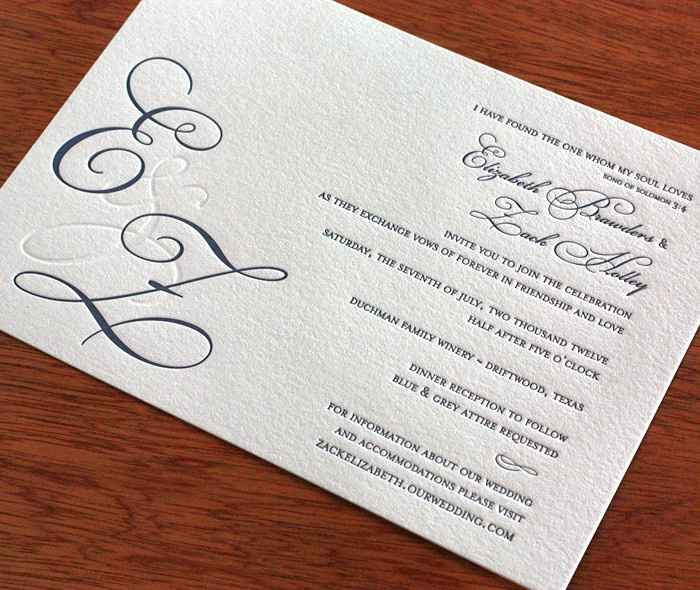 E
&
Z
I HAVE FOUND THE ONE WHOM MY SOUL LOVES
SONG OF SOLOMON 3:4
Elizabeth Brawders &
Zack Holley
INVITE YOU TO JOIN THE CELEBRATION
AS THEY EXCHANGE VOWS OF FOREVER IN FRIENDSHIP AND LOVE
SATURDAY, THE SEVENTH OF JULY, TWO THOUSAND TWELVE
HALF AFTER FIVE O'CLOCK
DUCHMAN FAMILY WINERY ~ DRIFTWOOD, TEXAS
DINNER RECEPTION TO FOLLOW
BLUE & GREY ATTIRE REQUESTED
FOR INFORMATION ABOUT OUR WEDDING
AND ACCOMMODATIONS PLEASE VISIT
ZACKELIZABETH.OURWEDDING.COM